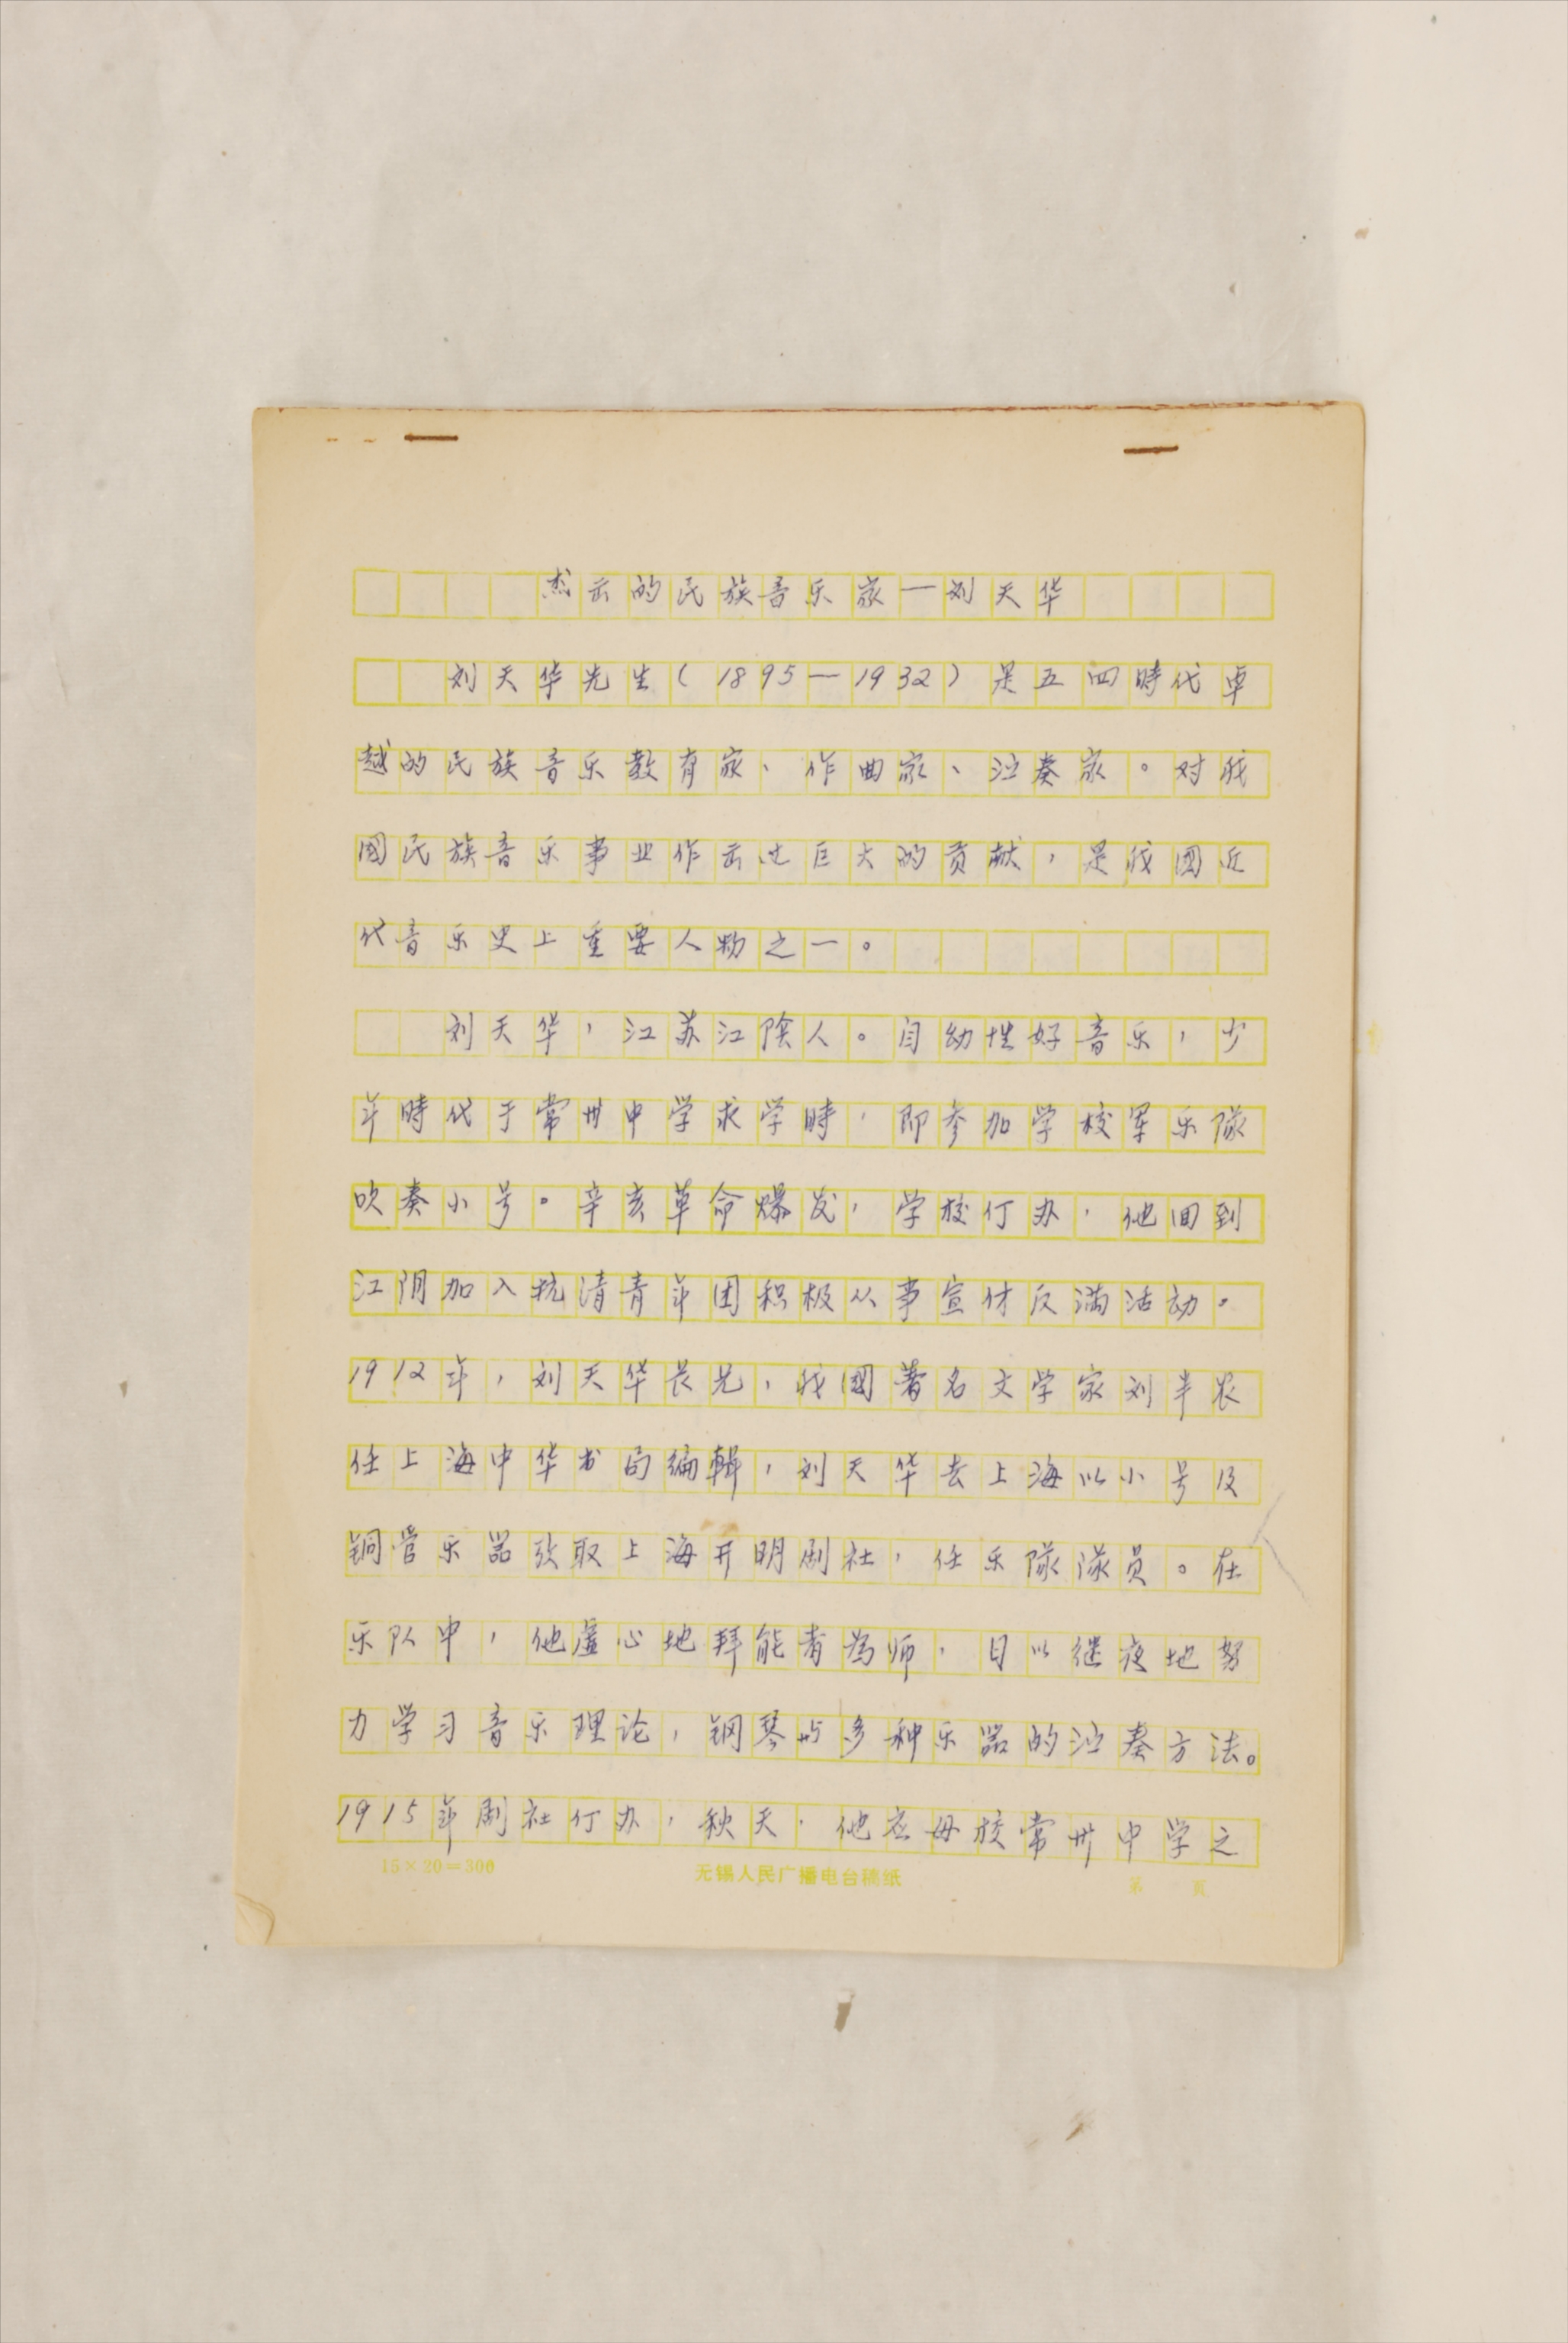 杰出的民族音乐家—刘天华
刘天华先生(1895—1932)是五四時代卓
越的民族音乐教育家、作曲家、泣奏家。对我
國民族音乐事业作出过巨大的贡献，是我國近
代音乐史上重要人物之一。
刘天华，江苏江陰人。自幼性好音乐，少
年時代于常州中学求学時，即参加学校軍乐隊
吹奏小号。辛亥革命爆发，学校仃办，他回到
江阴加入抗清青年团积极从事宣传反满活动。
1912年，刘天华長兄，我國著名文学家刘半农
任上海中华书局编輯，刘天华去上海以小号及
铜管乐器攷取上海开明剧社，任乐隊隊员。在
乐队中，他虚心地拜能者为师，日以继夜地努
力学习音乐理论，钢琴与多种乐器的泣奏方法。
1915年剧社仃办，秋天，他应母校常州中学之
15×20=300 无锡人民广播电台稿纸 第 页